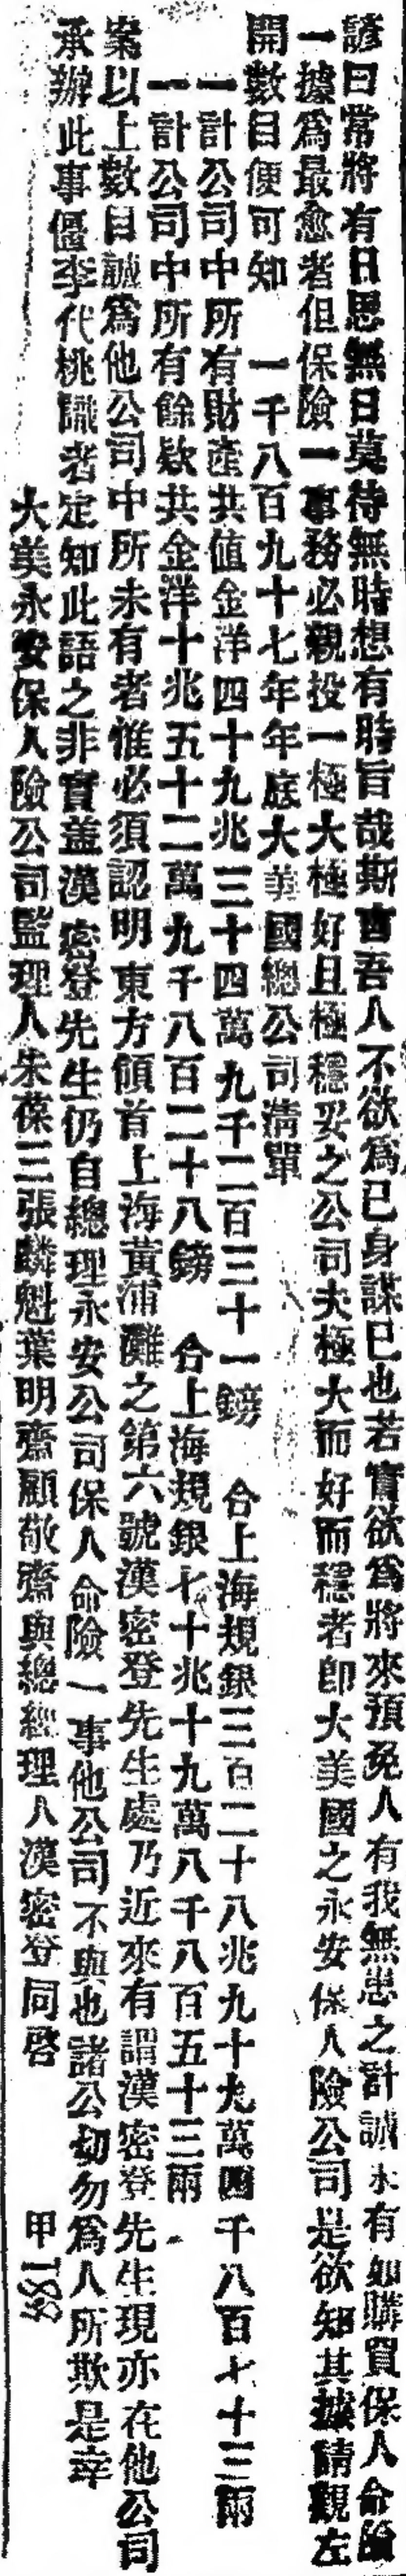 諺曰常將有日思無日莫待無時想有時旨哉斯言吾人不欲爲已身謀已也若實欲爲將來預免人有我無患之計誠未有如購買保人命險
一據爲最愈者但保險一事務必親投一極大極好且極穩妥之公司夫極大而好而穩者即大美國之永安保人險公司是欲知其據請觀左
開數目便可知　一千八百九十七年年底大美國總公司淸單
一計公司中所有財產共值金洋四十九兆三十四萬九千二百三十一鎊　合上海規銀三百二十八兆九十九萬四千八百七十三兩
一計公司中所有餘欵共金洋十兆五十二萬九千八百二十八鎊　合上海規銀七十兆十九萬八千八百五十三兩
案以上數目誠爲他公司中所未有者惟必須認明東方領首上海黃浦灘之第六號漢密登先生處乃近來有謂漢密登先生現亦在他公司
承辦此事僵李代桃識者定知此語之非實盖漢密登先生仍自總理永安公司保人命險一事他公司不與也諸公切勿爲人所欺是幸
大美永安保人險公司監理人朱葆三張麟魁葉明齋顧敬齋與總經理人漢密登同啓　甲